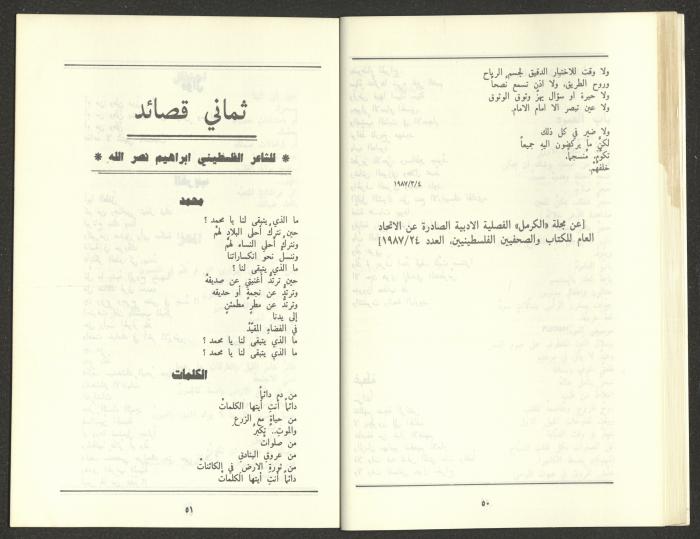 ولا وقت للاختيار الدقيق لجسم الرياح
وروح الطريق، ولا اذن تسمع نصحاً
ولا حيرة او سؤال يهزّ وثوق الوثوق
ولا عين تبصر الا امام الامام.
ولا ضير في كل ذلك
لكنّ ما يركضون اليه جميعاً
تكوّم، منسجماً،
خلفهم.
١٩٨٧/٣/٤
[عن مجلة «الكرمل» الفصلية الادبية الصادرة عن الاتحاد
العام للكتاب والصحفيين الفلسطينيين، العدد ١٩٨٧/٢٤]
٥٠
ثماني قصائد
* للشاعر الفلسطيني ابراهيم نصر الله *
محمد
ما الذي يتبقى لنا يا محمد ؟
حين نترك أحلى البلاد لهمْ
ونتركُ أحلى النساء لهمْ
وننسل نحو انكساراتنا
ما الذي يتبقى لنا ؟
حين ترتدُّ أغنيتي عن صديقهْ
وترتدُّ عن نجمةٍ أو حديقه
وترتدُّ عن مطرٍ مطمئنٍ
إلى يدنا
في الفضاءِ المقيّدْ
ما الذي يتبقى لنا يا محمد ؟
ما الذي يتبقى لنا يا محمد ؟
الكلمات
من دم دائماً
دائماً أنتِ أيتها الكلماتْ
من حياةٍ مع الزرعِ
والموتِ.. تكبرُ
من صلواتْ
من عروقِ البنادقِ
من ثورةِ الارضِ في الكائناتْ
دائماً أنتِ أيتها الكلماتْ
٥١